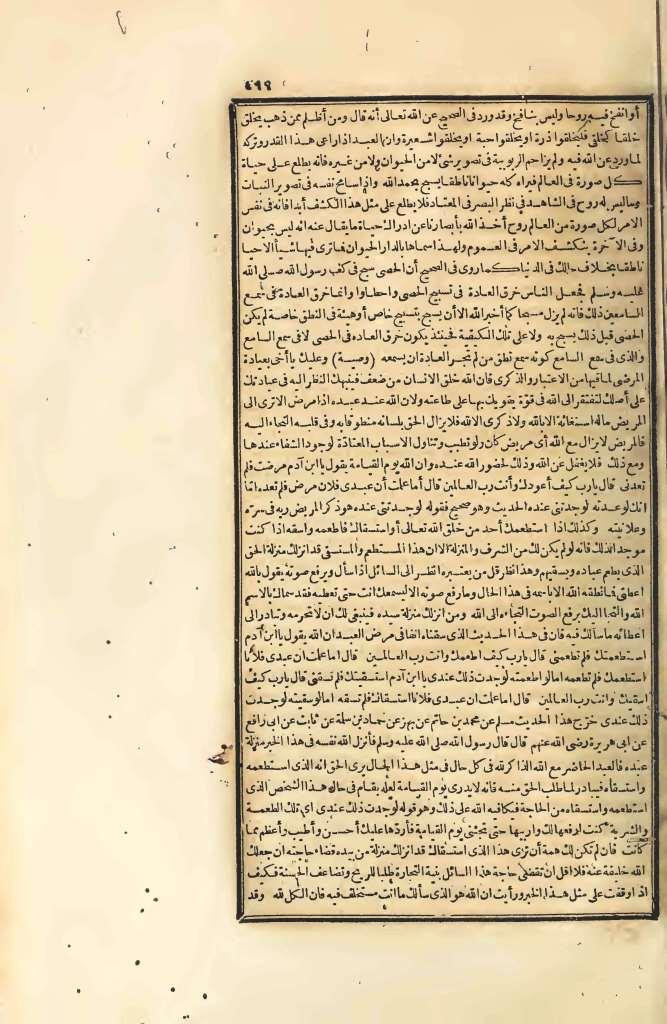 ٤٩٩
أو انفخ فيه روحا وليس بنافخ وقد ورد فى الصحيح عن الله تعالى أنه قال ومن أظلم ممن ذهب يخلق
خلقا كخلقى فليخلقوا ذرة او ليخلقوا حبة او ليخلقوا شعيرة وان العبد اذا راعى هذا القدر وتركه
لما ورد عن الله فيه ولم يزاحم الربوبية فى تصوير شئ لا من الحيوان ولا من غيره فانه يطلع على حياة
كل صورة فى العالم فيراه كله حيوانا ناطقا يسبح بحمد الله واذا سامح نفسه فى تصوير النبات
وما ليس له روح فى الشاهد فى نظر البصر فى المعتاد فلا يطلع على مثل هذا الكشف أبدا فانه فى نفس
الامر لكل صورة من العالم روح أخذ الله بأبصارنا عن ادراك حياة ما يقال عنه انه ليس بحيوان
وفى الآخرة ينكشف الامر فى العموم ولهذا سماها بالدار الحيوان فما ترى فيها شيأ الا حيا
ناطقا بخلاف حالك فى الدنيا كما روى فى الصحيح أن الحصى سبح فى كف رسول الله صلى الله
عليه وسلم فجعل الناس خرق العادة فى تسبيح الحصى واخطاوا وانما خرق العادة فى سمع
السامعين ذلك فانه لم يزل مسبحا كما أخبر الله الا أن يسبح بتسبيح خاص أو هيئة فى النطق خاصة لم يكن
الحصى قبل ذلك يسبح به ولا على تلك الكيفية فحينئذ يكون خرق العاده فى الحصى لا فى سمع السامع
والذى فى سمع السامع كونه سمع نطق من لم تجر العادة ان يسمعه (وصية) وعليك يا أخى بعيادة
المرضى لما فيها من الاعتبار والذكرى فان الله خلق الانسان من ضعف فينبهك النظر اليه فى عيادتك
على أصلك لتفتقر الى الله فى قوة يقويك بها على طاعته ولان الله عند عبده اذا مرض الا ترى الى
المريض ماله استغاثة الا بالله ولا ذكرى الا الله فلا يزال الحق بلسانه منطوقا به وفى قلبه التجاء اليه
فالمريض لا يزال مع الله أى مريض كان ولو تطبب وتناول الاسباب المعتادة لوجود الشفاء عندها
ومع ذلك فلا يغفل عن الله وذلك لحضور الله عنده وان الله يوم القيامة يقول يا ابن آدم مرضت فلم
تعدنى قال يارب كيف أعودك وأنت رب العالمين قال أما علمت أن عبدى فلان مرض فلم تعده اما
انك لو عدته لوجدتنى عنده الحديث وهو صحيح فقوله لوجدتنى عنده هو ذكر المريض ربه فى سره
وعلانيته وكذلك اذا استطعمك أحد من خلق الله تعالى أو استسقاك فاطعمه واسقه اذا كنت
موجدا لذلك فانه لو لم يكن لك من الشرف والمنزلة الا ان هذا المستطعم والمستسقى قد انزلك منزلة الحق
الذى يطعم عباده ويسقيهم وهذا نظر قل من يعتبره انظر الى السائل اذا سأل ويرفع صوته يقول بالله
اعطنى فما نطقه الله الا باسمه فى هذا الحال وما رفع صوته الا ليسمعك انت حتى تعطيه فقد سماك بالاسم
الله والتجأ اليك برفع الصوت التجاءه الى الله ومن انزلك منزلة سيده فينبغى لك ان لا تحرمه وتبادر الى
اعطائه ما سألك فيه فان فى هذا الحديث الذى سقناه انفا فى مرض العبد ان الله يقول يا ابن آدم
استطعمتك فلم تطعمنى قال يارب كيف اطعمك وانت رب العالمين قال اما علمت ان عبدى فلانا
استطعمك فلم تطعمه اما لو اطعمته لوجدت ذلك عندى يا ابن آدم استسقيتك فلم تسقنى قال يارب كيف
اسقيك وانت رب العالمين قال اما علمت ان عبدى فلانا استسقاك فلم تسقه اما لو سقيته لوجدت
ذلك عندى خرج هذا الحديث مسلم عن محمد بن حاتم عن بهز عن حماد بن سلمة عن ثابت عن ابى رافع
عن ابى هريرة رضى الله عنهم قال قال رسول الله صلى الله عليه وسلم فأنزل الله نفسه فى هذا الخبر منزلة
عبده فالعبد الحاضر مع الله الذاكر لله فى كل حال فى مثل هذا الحال يرى الحق انه الذى استطعمه
واستسقاه فيبادر لما طلب الحق منه فانه لا يدرى يوم القيامة لعله يقام فى حال هذا الشخص الذى
استطعمه واستسقاه من الحاجة فيكافيه الله على ذلك وهو قوله لوجدت ذلك عندى اى تلك الطعمة
والشربة كنت ارفعها لك واربيها حتى تجيئنى يوم القيامة فأردها عليك أحسن وأطيب وأعظم مما
كانت فان لم تكن لك همة أن ترى هذا الذى استسقاك قد انزلك منزلة من بيده قضاء حاجته ان جعلك
الله خليفة عنه فلا اقل ان تقضى حاجة هذا السائل بنية التجارة طلبا للربح وتضاعف الحسنة فكيف
اذا وقفت على مثل هذا الخبر ورأيت ان الله هو الذى سألك ما انت مستخلف فيه فان الكل لله وقد